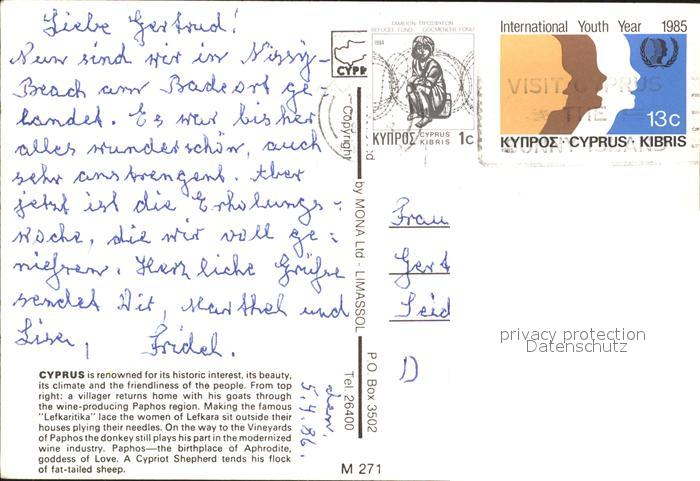 Liebe Gertrud!
Nun sind wir in Nissy-
Beach am Badeort ge-
landet. Es war bisher
alles wunderschön, auch
sehr anstrengend. Aber
jetzt ist die Erholungs-
woche, die wir voll ge-
niefsen. Herzliche Grüße
sendet Dir, Marthel und
Lisa, Fridel.
den
5.4.86.
CYPRUS is renowned for its historic interest, its beauty,
its climate and the friendliness of the people. From top
right: a villager returns home with his goats through
the wine-producing Paphos region. Making the famous
"Lefkaritika" lace the women of Lefkara sit outside their
houses plying their needles. On the way to the Vineyards
of Paphos the donkey still plays his part in the modernized
wine industry. Paphos—the birthplace of Aphrodite,
goddess of Love. A Cypriot Shepherd tends his flock
of fat-tailed sheep.
M 271
Copyright by MONA Ltd - LIMASSOL P.O. Box 3502
Tel. 26400
CYPR
ΤΑΜΕΙΟΝ ΠΡΟΣΦΥΓΩΝ
REFUGEE FUND GÖÇMENLER FONU
1984
ΚΥΠΡΟΣ CYPRUS KIBRIS 1c
International Youth Year 1985
VISIT CYPRUS
THE
SUNNY ISLAND
13c
ΚΥΠΡΟΣ CYPRUS KIBRIS
Frau
Gert
Seid
D
privacy protection
Datenschutz